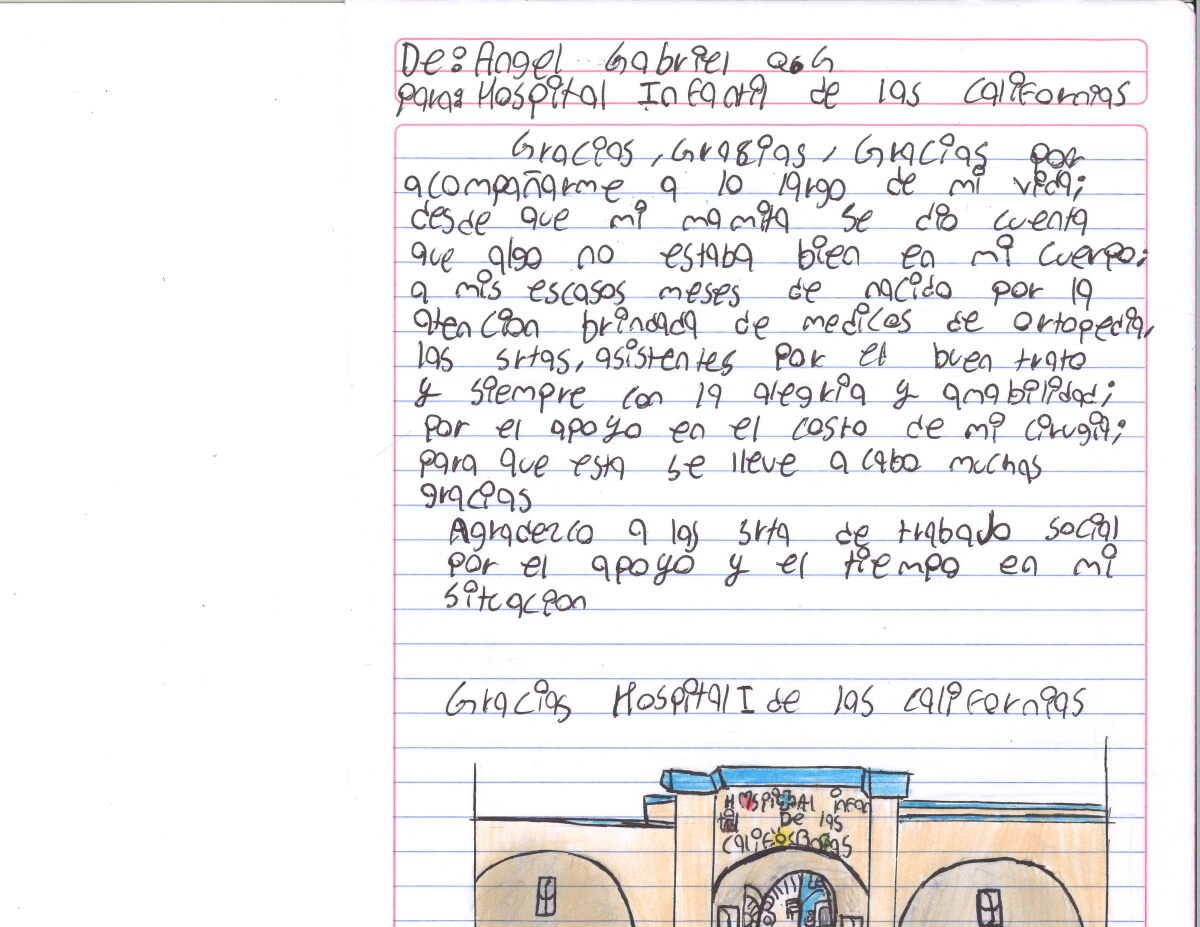 De: Angel Gabriel Q.G
para: Hospital Infantil de las Californias
Gracias, Gracias, Gracias por
acompañarme a lo largo de mi vida;
desde que mi mamita se dio cuenta
que algo no estaba bien en mi cuerpo;
a mis escasos meses de nacido por la
atencion brindada de medicos de ortopedia,
las srtas, asistentes por el buen trato
y siempre con la alegria y amabilidad;
por el apoyo en el costo de mi cirugia;
para que esta se lleve a cabo muchas
gracias
Agradezco a las srta de trabajo social
por el apoyo y el tiempo en mi
situacion
Gracias Hospital I de las californias
Hospital infan
til De las